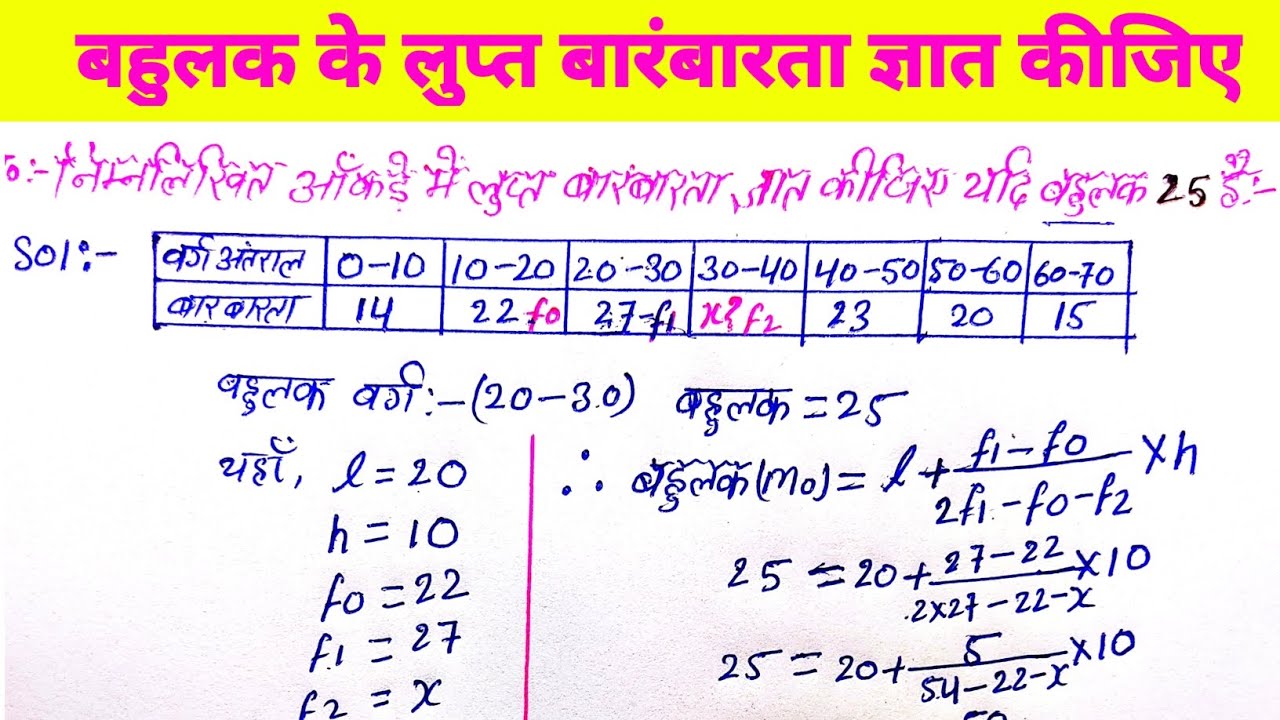 बहुलक के लुप्त बारंबारता ज्ञात कीजिए
निम्नलिखित आँकड़े में लुप्त बारंबारता ज्ञात कीजिए यदि बहुलक 25 है:-
Sol:-
वर्ग अंतराल 0-10 10-20 20-30 30-40 40-50 50-60 60-70
बारंबारता 14 22 f0 27-f1 x? f2 23 20 15
बहुलक वर्ग:-(20-30) बहुलक = 25
यहाँ, l = 20
h = 10
f0 = 22
f1 = 27
f2 = x
∴ बहुलक(mo) = l + f1-f0 / 2f1-f0-f2 × h
25 = 20 + 27-22 / 2×27-22-x × 10
25 = 20 + 5 / 54-22-x × 10